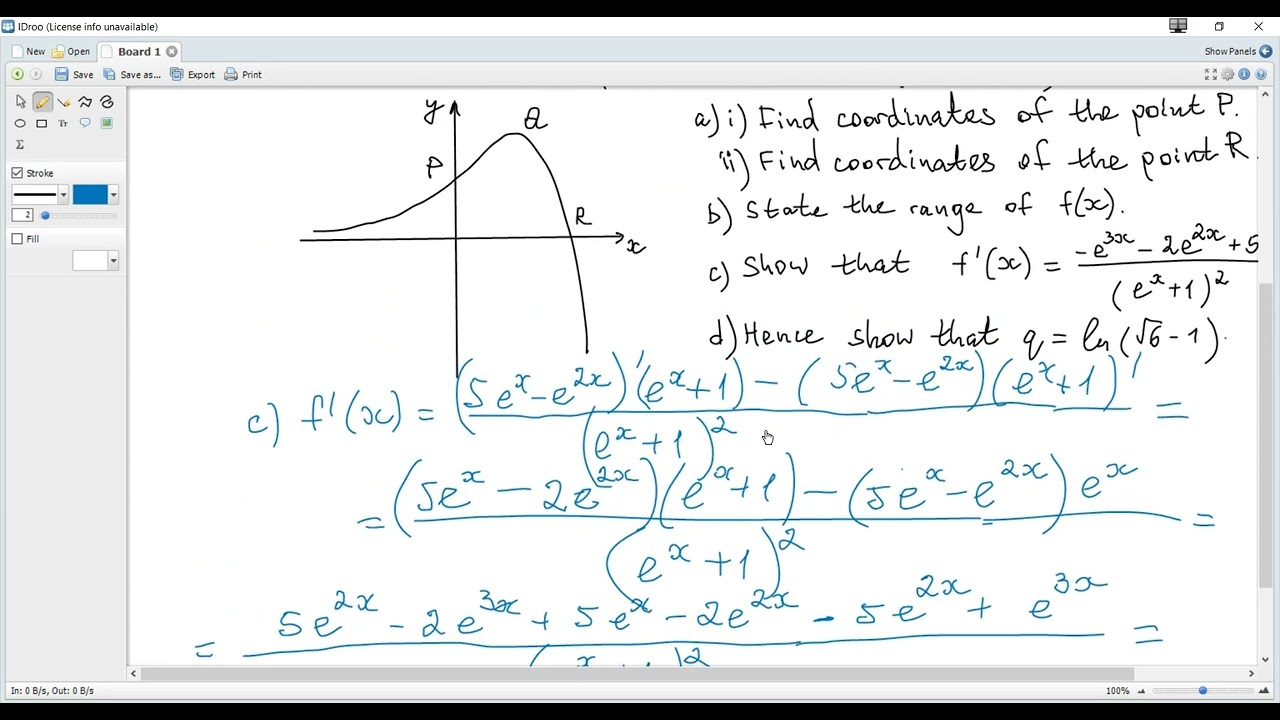 IDroo (License info unavailable)
New Open Board 1
Show Panels
Save Save as... Export Print
Tr
Σ
Stroke
2
Fill
y
Q
P
R
x
a) i) Find coordinates of the point P.
ii) Find coordinates of the point R.
b) State the range of f(x).
c) Show that f'(x) = (-e^{3x} - 2e^{2x} + 5 / (e^x + 1)^2
d) Hence show that q = ln(√6 - 1).
c) f'(x) = ((5e^x - e^{2x})'(e^x + 1) - (5e^x - e^{2x})(e^x + 1)') / (e^x + 1)^2 =
= ((5e^x - 2e^{2x})(e^x + 1) - (5e^x - e^{2x})e^x) / (e^x + 1)^2 =
= (5e^{2x} - 2e^{3x} + 5e^x - 2e^{2x} - 5e^{2x} + e^{3x}) / =
In: 0 B/s, Out: 0 B/s
100%